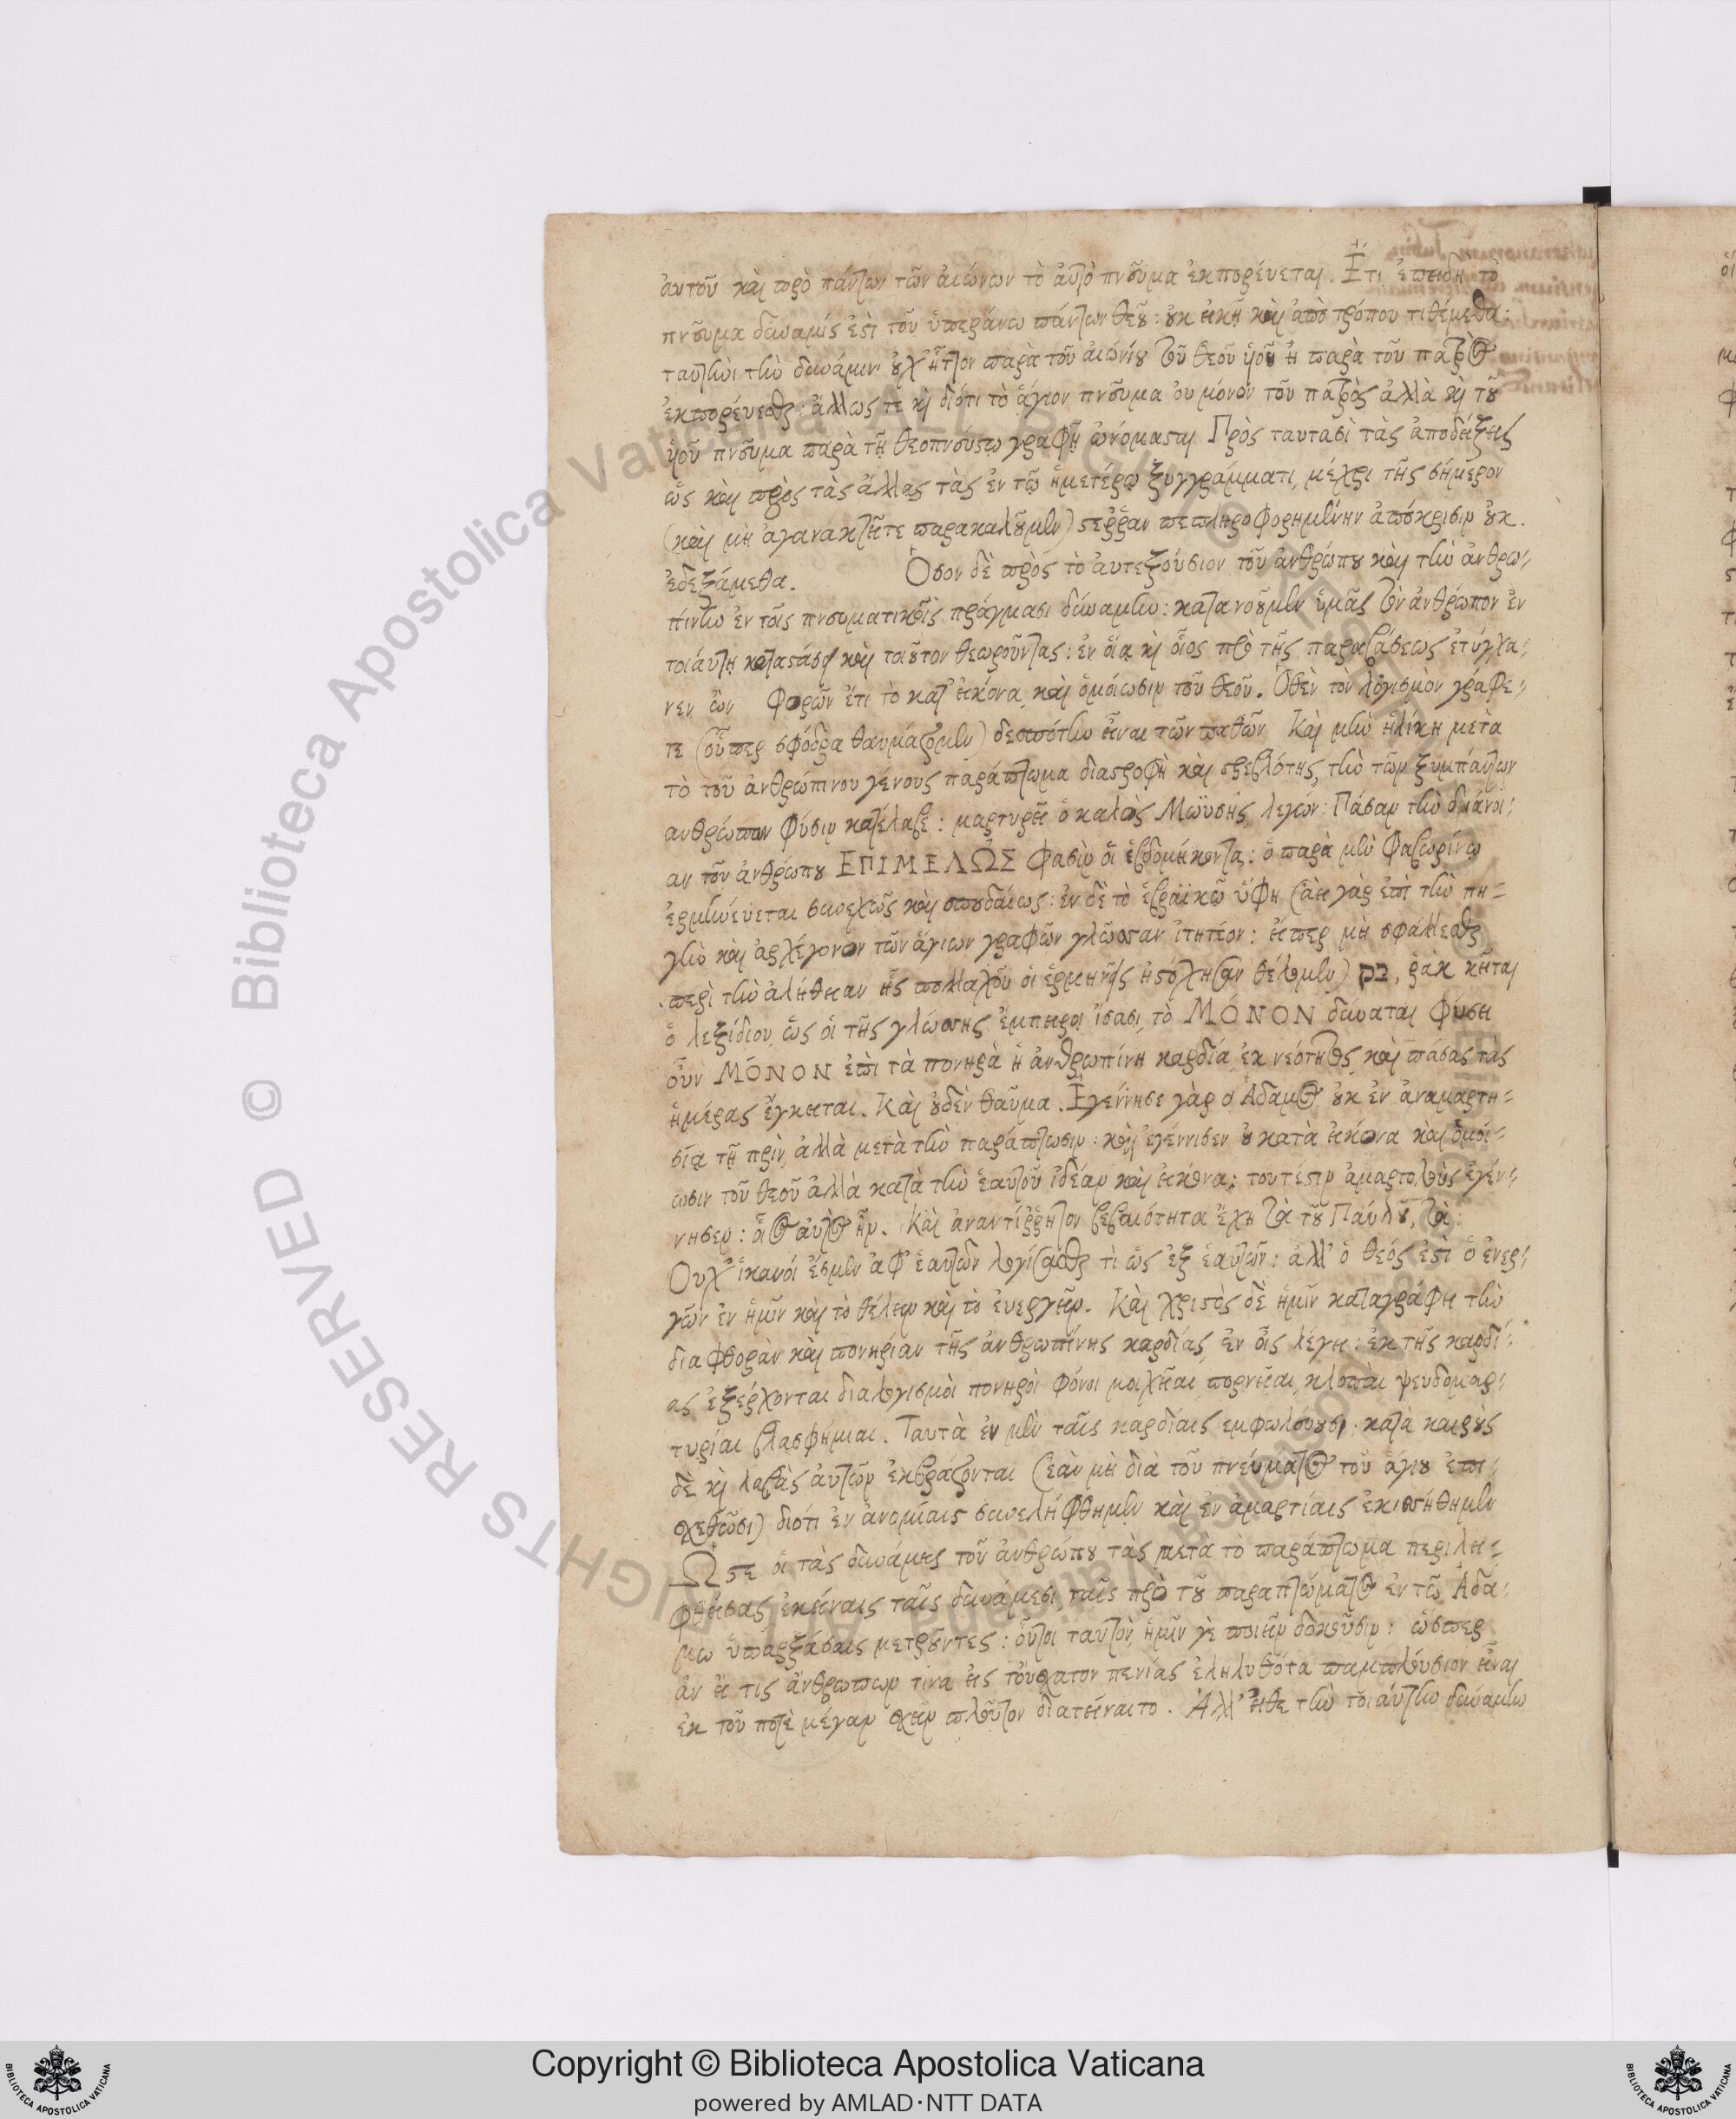 αυτοῦ καὶ πρὸ πάντων τῶν ἀιώνων τὸ ἀυτὸ πνεῦμα ἐκπορέυεται. Ἔτι ἐπειδὴ τὸ
πνεῦμα δύναμίς ἐστὶ τοῦ ὑπεράνω πάντων θεοῦ: ουκ ἐικῆ καὶ ἀπὸ τρόπου τιθέμεθα:
ταυτὶωὶ τὴν δύναμιν ουχ' ἧττον παρὰ τοῦ ἀιωνίου τοῦ θεοῦ ὑιοῦ ἢ παρὰ τοῦ πατρὸς
ἐκπορέυεσθαι: ἄλλως τε καὶ διότι τὸ ἅγιον πνεῦμα ὀυ μόνον τοῦ πατρὸς ἀλλὰ καὶ τοῦ
ὑιοῦ πνεῦμα παρὰ τῆ θεοπνεύστω γραφῆ ὠνόμασται Πρὸς ταυτασὶ τὰς ἀποδείξεις
ὥς καὶ πρὸς τὰς ἄλλας τὰς ἐν τῶ ἡμετέρω ξυγγράμματι, μέχρι τῆς σήμερον
(καὶ μὴ ἀγανακτεῖτε παρακαλοῦμεν) στερῥὰν πεπληροφορημένην ἀπόκρισιν ουκ.
ἐδεξάμεθα. Ὅσον δὲ πρὸς τὸ ἀυτεξούσιον τοῦ ἀνθρώπου καὶ τὴν ἀνθρω-
πίνην ἐν τοῖς πνευματικοῖς πράγμασι δύναμιν: κατανοοῦμεν ὑμᾶς τὸν ἀνθρωπον ἐν
τοιάυτη καταστάσει καὶ τοιοῦτον θεωροῦντας: ἐν ὅια καὶ οἷος πρὸ τῆς παραβάσεως ἐτύγχα-
νεν ὢν φορῶν ἔτι τὸ κατ' ἐικόνα καὶ ὁμόιωσιν τοῦ θεοῦ. Ὅθεν τὸν λογισμὸν γράφε-
τε (οὗπερ σφόδρα θαυμάζομεν) δεσπότην εἶναι τῶν παθῶν Καὶ μὴν ἡλίκη μετὰ
τὸ τοῦ ἀνθρώπινου γένους παράπτωμα διαστροφὴ καὶ στρεβλότης, τὴν τῶν ξυμπάντων
ανθρώπων φύσιν κατέλαβε: μαρτυρεῖ ὁ καλὸς Μωϋσῆς λεγών: Πάσαν τὴν διάνοι-
αν τοῦ ἀνθρώπου ΕΠΙΜΕΛΩΣ φασὶν οἱ ἑβδομήκοντα: ὃ παρὰ μὲν Φαβωρίνω
ἑρμηνέυεται συνεχῶς καὶ σπουδάιως: ἐν δὲ τὸ ἑβραϊκῶ ὕφη (ἀεὶ γὰρ ἐπὶ τὴν πη-
γὴν καὶ ἀρχέγονον τῶν ἁγιων γραφῶν γλῶσσαν ἰτητέον: εἴπερ μὴ σφάλλεσθαι
περὶ τὴν ἀλήθειαν ἧς πολλαχοῦ οἱ ἑρμηνεῖς ἠστόχησαν θέλομεν) רק, ῥὰκ κεῖται
ὃ λεξίδιον, ὥς οἱ τῆς γλώσσης ἔμπειροι ἴσασι, τὸ ΜΌΝΟΝ δύναται φύσει
οὖν ΜΌΝΟΝ ἐπὶ τὰ πονηρὰ ἡ ἀνθρωπίνη καρδία ἐκ νεότητος καὶ πάσας τας
ἡμέρας ἔγκειται. Καὶ ουδὲν θαῦμα. Ἐγέννησε γὰρ ὁ Ἀδαμος ουκ ἐν ἀναμαρτη-
σία τῆ πρὶν, ἀλλὰ μετὰ τὴν παράπτωσιν: καὶ ἐγέννισεν ου κατὰ ἐικόνα καὶ ὁμόι-
ωσιν τοῦ θεοῦ ἀλλὰ κατὰ τὴν ἑαυτοῦ ἰδέαν καὶ ἐικόνα: τουτέστιν ἁμαρτολοὺς ἐγέν-
νησεν: οἷος αὐτὸς ἦν. Καὶ ἀναντίῤῥητον βεβαιότητα ἔχη τὰ τοῦ Πάυλου, τὰ:
Ουχ' ἱκανοί ἐσμεν ἀφ' ἑαυτῶν λογίσασθαι τὶ ὥς ἐξ ἑαυτῶν: ἀλλ' ὁ θεός ἐστὶ ὁ ἐνερ-
γῶν ἐν ἡμῶν καὶ τὸ θέλειν καὶ τὸ ἐνεργεῖν. Καὶ χριστὸς δὲ ἡμῖν καταγράφει τὴν
διαφθορὰν καὶ πονηρίαν τῆς ἀνθρωπίνης καρδίας, ἐν οἷς λέγει: ἐκ τῆς καρδί-
ας ἐξέρχονται διαλογισμὸι πονηρὸι φόνοι μοιχεῖαι, πορνεῖαι, κλοπὰι ψευδομαρ-
τυρίαι βλασφήμιαι. Ταυτὰ ἐν μὲν ταῖς καρδίαις εμφωλέυουσι: κατὰ καιροὺς
δὲ καὶ λαβὰς ἀυτῶν ἐκβράζονται (ἐὰν μὴ διὰ τοῦ πνέυματος τοῦ ἁγίου ἐπι-
σχεθῶσι) διότι ἐν ἀνομίαις συνελήφθημεν καὶ ἐν ἁμαρτίαις ἐκισσήθημεν
Ὥστε οἱ τὰς δυνάμεις τοῦ ἀνθρώπου τὰς μετὰ τὸ παράπτωμα περιλει-
φθείσας ἐκείναις ταῖς δυνάμεσι, ταῖς πρὸ τοῦ παραπτώματος ἐν τῶ Ἀδά-
μω ὑπαρξάσαις μετροῦντες: οὗτοι ταυτὸν ἡμῖν γὲ ποιεῖν δοκοῦσιν: ὥσπερ
ἀν εἰ τις ἀνθρωπων τινα εἰς τὄυσχατον πενίας ἐληλυθότα παμπλούσιον εἶναι
ἐκ τοῦ ποτὲ μέγαν σχεῖν πλοῦτον διατείναιτο. Ἀλλ' εἴθε τὴν τοιάυτην δύναμιν
Copyright © Biblioteca Apostolica Vaticana
powered by AMLAD·NTT DATA
© Biblioteca Apostolica Vaticana ALL RIGHTS RESERVED